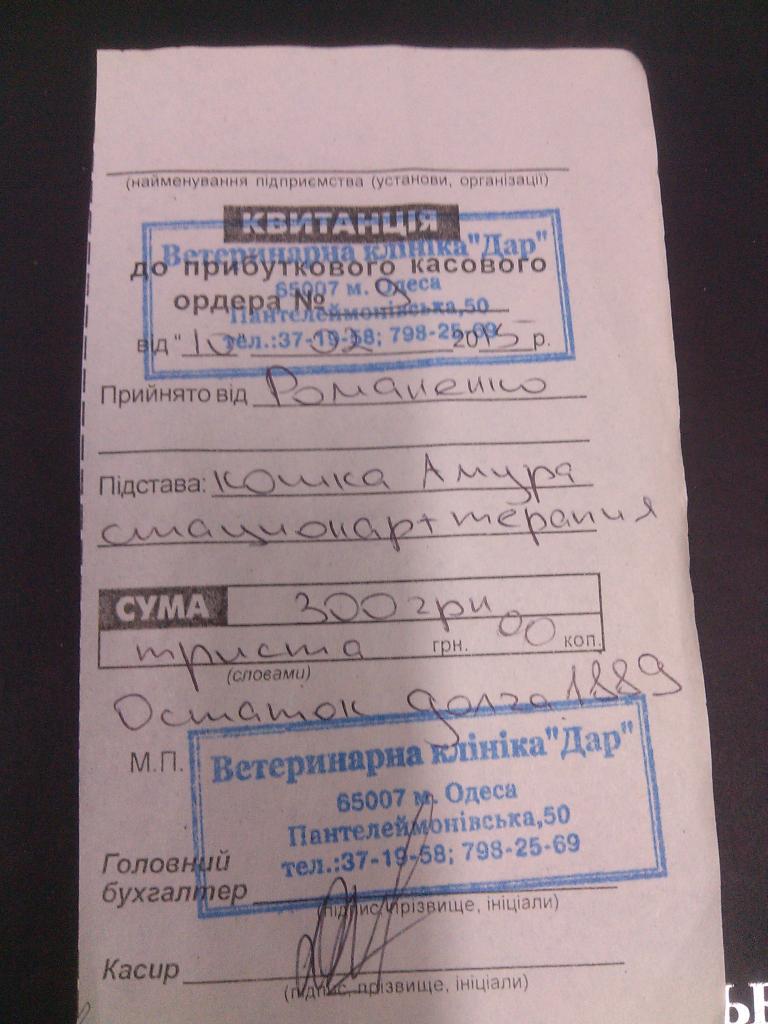 (найменування підприємства (установи, організації)
КВИТАНЦІЯ
Ветеринарна клініка"Дар"
до прибуткового касового
65007 м. Одеса
ордера №
Пантелеймонівська,50
тел.:37-19-58; 798-25-69
від "10" 02 2015 р.
Прийнято від Романенко
Підстава: кошка Амура
стационар + терапия
СУМА 300 грн
триста грн. 00 коп.
(словами)
Остаток долга 1889
М.П.
Ветеринарна клініка"Дар"
65007 м. Одеса
Пантелеймонівська,50
тел.:37-19-58; 798-25-69
Головний
бухгалтер
(підпис, прізвище, ініціали)
Касир
(підпис, прізвище, ініціали)